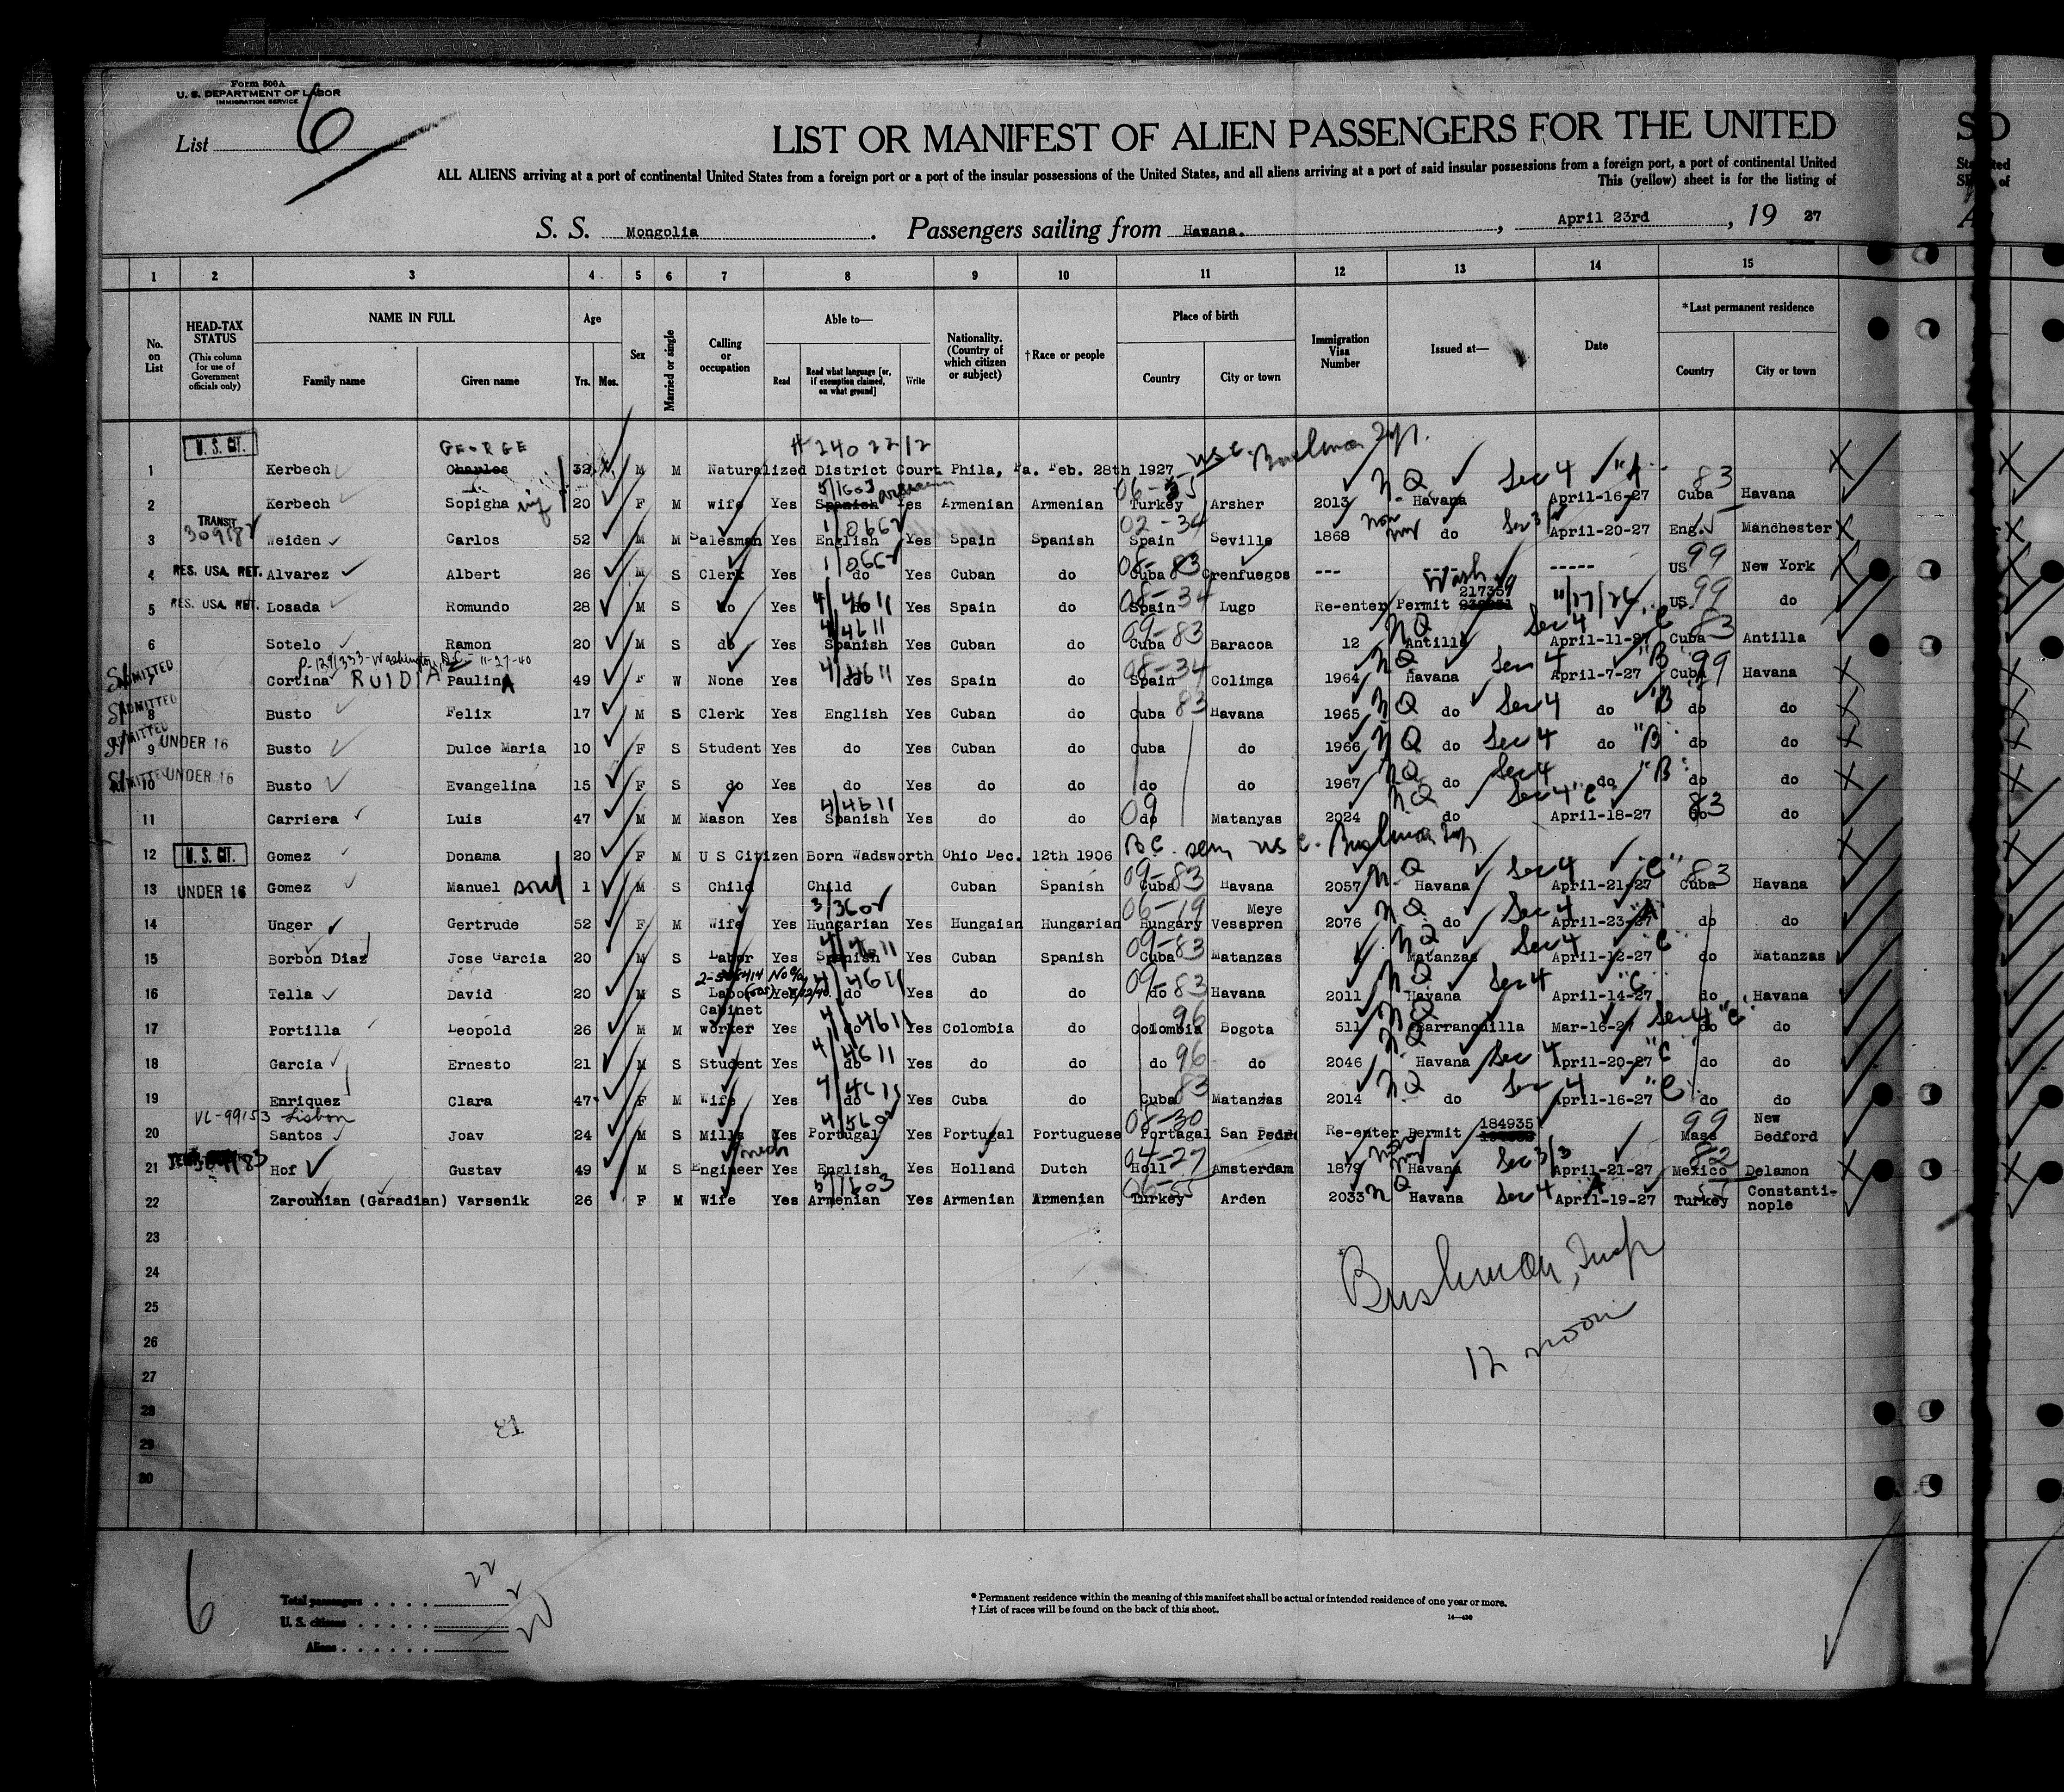 Form 500A
U. S. DEPARTMENT OF LABOR
IMMIGRATION SERVICE
List 6
LIST OR MANIFEST OF ALIEN PASSENGERS FOR THE UNITED
ALL ALIENS arriving at a port of continental United States from a foreign port or a port of the insular possessions of the United States, and all aliens arriving at a port of said insular possessions from a foreign port, a port of continental United
This (yellow) sheet is for the listing of
S. S. Mongolia. Passengers sailing from Havana., April 23rd, 19 27
1 2 3 4 5 6 7 8 9 10 11 12 13 14 15
No. on List
HEAD-TAX STATUS (This column for use of Government officials only)
NAME IN FULL Family name Given name
Age Yrs. Mos.
Sex
Married or single
Calling or occupation
Able to— Read Read what language [or, if exemption claimed, on what ground] Write
Nationality. (Country of which citizen or subject)
†Race or people
Place of birth Country City or town
Immigration Visa Number
Issued at—
Date
*Last permanent residence Country City or town
U. S. CIT. GEORGE # 2402212
1 Kerbech Charles 32 M M Naturalized District Court Phila, Pa. Feb. 28th 1927 USC. Bushman Insp.
2 Kerbech Sopigha 20 F M wife Yes Spanish Yes Armenian Armenian Turkey Arsher 2013 NQ Havana Sec 4 "A" April-16-27 Cuba 83 Havana
TRANSIT
3 Weiden Carlos 52 M M Salesman Yes English Yes Spain Spanish Spain 02-34 Seville 1868 do April-20-27 Eng. Manchester
4 RES. USA. RET. Alvarez Albert 26 M S Clerk Yes do Yes Cuban do Cuba 83 Crenfuegos --- ----- US 99 New York
Wash 217359
5 RES. USA. RET. Losada Romundo 28 M S do Yes do Yes Spain do Spain 34 Lugo Re-enter Permit 11/27/26 US. 99 do
6 Sotelo Ramon 20 M S do Yes Spanish 4/4611 Yes Cuban do 83 Baracoa 12 NQ Antilla Sec 4 April-11-27 "C" Cuba 83 Antilla
P-129/333-Washington, D.C. 11-27-40
ADMITTED Cortina RUDIA Paulina 49 F W None Yes do 4/4611 Yes Spain do Spain 08-34 Colimga 1964 NQ Havana Sec 4 April-7-27 "B" Cuba 99 Havana
ADMITTED 8 Busto Felix 17 M S Clerk Yes English Yes Cuban do Cuba 83 Havana 1965 NQ do Sec 4 do "B" do do
ADMITTED 9 UNDER 16 Busto Dulce Maria 10 F S Student Yes do Yes Cuban do Cuba do 1966 NQ do Sec 4 do "B" do do
ADMITTED 10 UNDER 16 Busto Evangelina 15 F S do Yes do Yes do do do do 1967 NQ do Sec 4 do "B" do do
11 Carriera Luis 47 M M Mason Yes Spanish 4/4611 Yes do do do 09 Matanyas 2024 NQ do Sec 4 "C" April-18-27 do 83 do
12 U. S. CIT. Gomez Donama 20 F M U S Citizen Born Wadsworth Ohio Dec. 12th 1906 BC. seen USC. Bushman Insp
13 UNDER 16 Gomez Manuel son 1 M S Child Child Cuban Spanish Cuba 09-83 Havana 2057 NQ Havana Sec 4 April-21-27 "C" Cuba 83 Havana
14 Unger Gertrude 52 F M Wife Yes Hungarian Yes Hungaian Hungarian Hungary 06-19 Meye Vesspren 2076 NQ do Sec 4 April-23-27 "A" do do
15 Borbon Diaz Jose Garcia 20 M S Labor Yes Spanish 4/4611 Yes Cuban Spanish Cuba 09-83 Matanzas NQ Matanzas Sec 4 April-12-27 "C" do Matanzas
16 Tella David 20 M S Labor Yes do 4/4611 Yes do do do 09-83 Havana 2011 NQ Havana Sec 4 April-14-27 "C" do Havana
17 Portilla Leopold 26 M M Cabinet worker Yes do 4/4611 Yes Colombia do Colombia 96 Bogota 511 NQ Barranquilla Mar-16-27 Sec 4 "C" do do
18 Garcia Ernesto 21 M S Student Yes do 4/4611 Yes do do do 96 do 2046 NQ Havana Sec 4 April-20-27 "C" do do
19 Enriquez Clara 47 F M Wife Yes do Yes Cuba do Cuba 83 Matanzas 2014 NQ do Sec 4 April-16-27 "C" do do
VL-99153 Lisbon
20 Santos Joav 24 M S Mills Yes Portugal Yes Portugal Portuguese Portagal 08-30 San Pedro Re-enter Permit 184935 Mass 99 New Bedford
21 Hof Gustav 49 M S Engineer mech Yes English Yes Holland Dutch Holl 04-27 Amsterdam 1879 Havana Sec 3/3 April-21-27 Mexico 82 Delamon
22 Zarounian (Garadian) Varsenik 26 F M Wife Yes Armenian 5/1603 Yes Armenian Armenian Turkey Arden 2033 NQ Havana Sec 4 A April-19-27 Turkey Constanti-nople
23
24 Bushman, Insp
25
26 12 noon
27
28
29
30
31
6
Total passengers 22
U. S. citizens 2
Aliens 20
* Permanent residence within the meaning of this manifest shall be actual or intended residence of one year or more.
† List of races will be found on the back of this sheet.
14—430